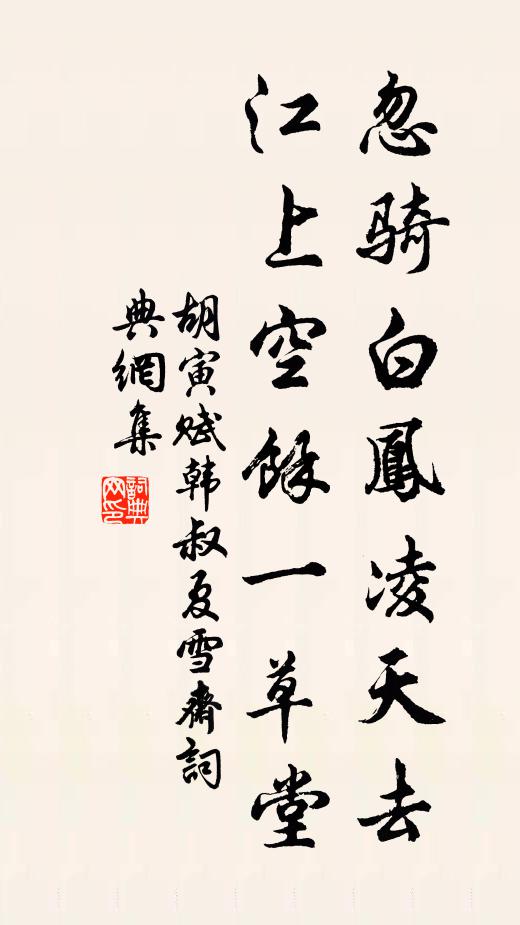 忽骑白鳳凌天去
江上空餘一草堂
胡寅赋韩叔夏雪齋詞
典網集
詞典网印